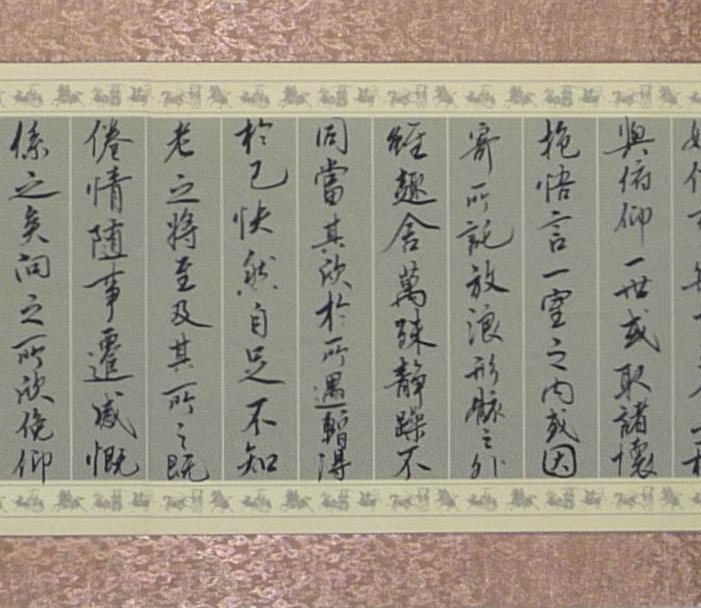 與俯仰一世或取諸懷
抱悟言一室之內或因
寄所託放浪形骸之外
雖趣舍萬殊靜躁不
同當其欣於所遇暫得
於己快然自足不知
老之將至及其所之既
倦情隨事遷感慨
係之矣向之所欣俛仰